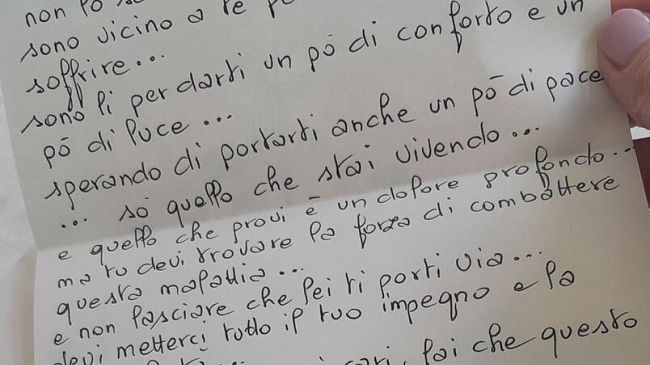 non lo
sono vicino a te
soffrire...
sono lì per darti un pò di conforto e un
pò di luce...
sperando di portarti anche un pò di pace
... sò quello che stai vivendo...
e quello che provi è un dolore profondo...
ma tu devi trovare la forza di combattere
questa malattia...
e non lasciare che lei ti porti via...
devi metterci tutto il tuo impegno e la
fai che questo